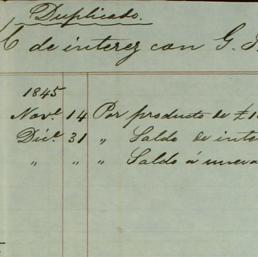 Duplicado.
C de interez con G.
1845
Novᵉ 14 Por producto de £1
Dicᵉ 31 „ Saldo de inte
„ „ „ Saldo á nueva